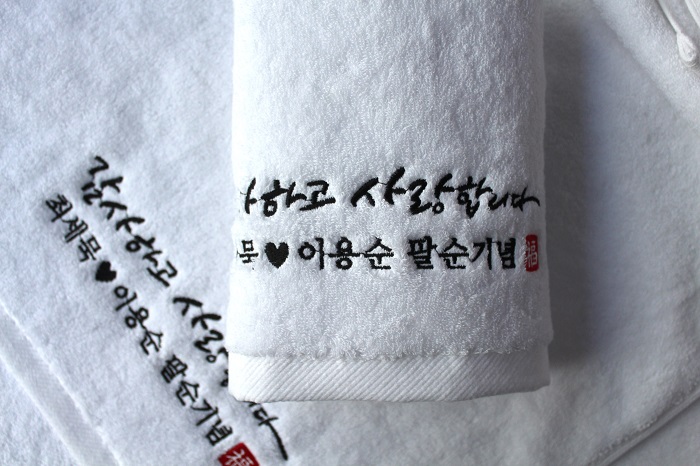 감사하고 사랑합니다
최세묵♥이용순 팔순기념 福
사하고 사랑합니다
묵♥이용순 팔순기념 福